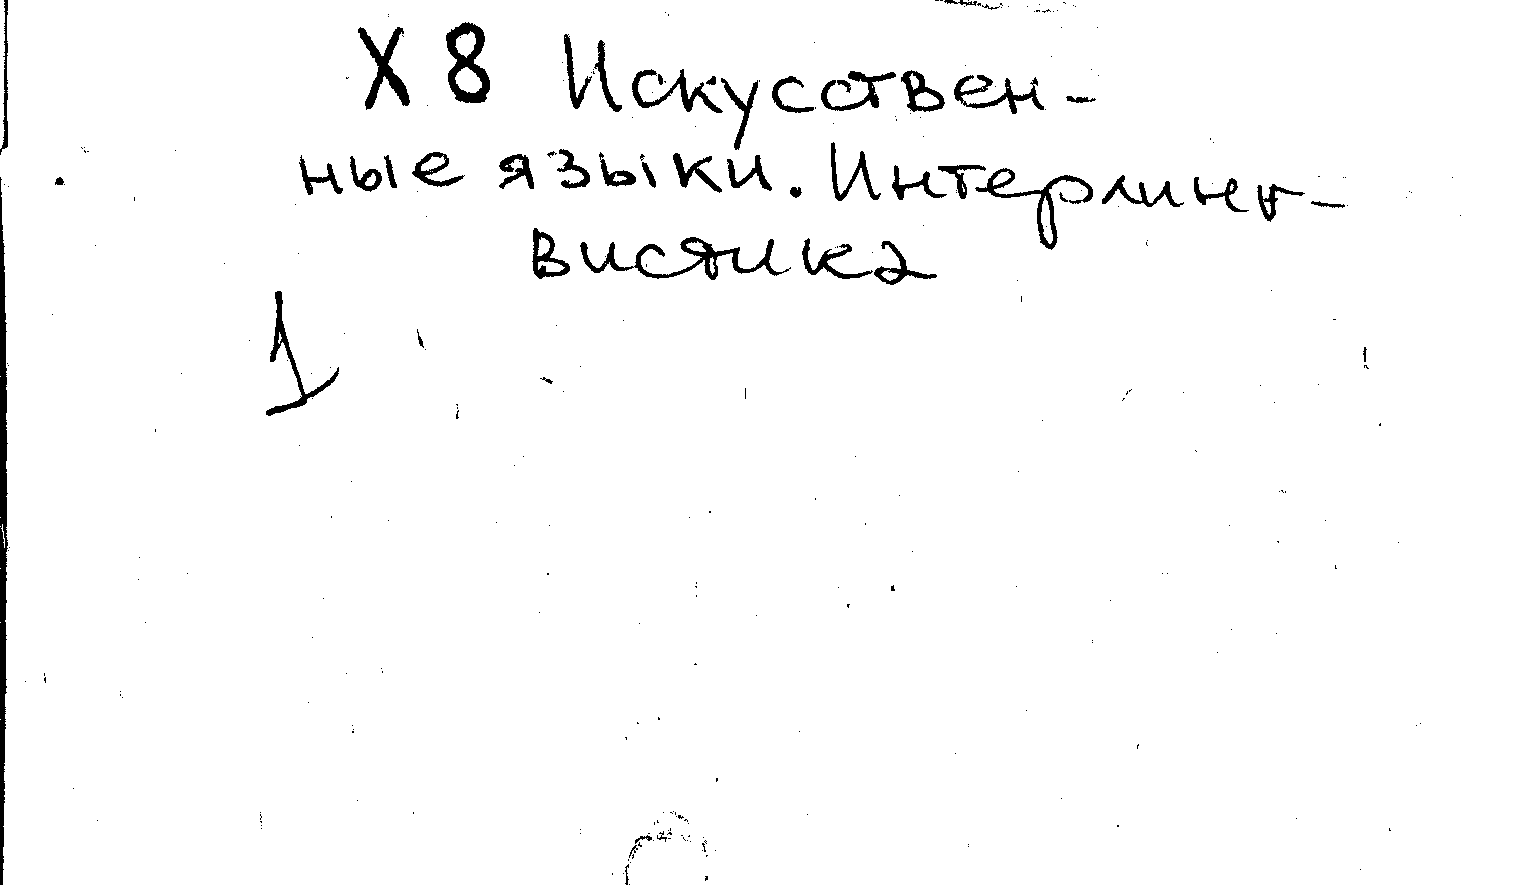 X 8 Искусствен-
ные языки. Интерлинг-
вистика
1